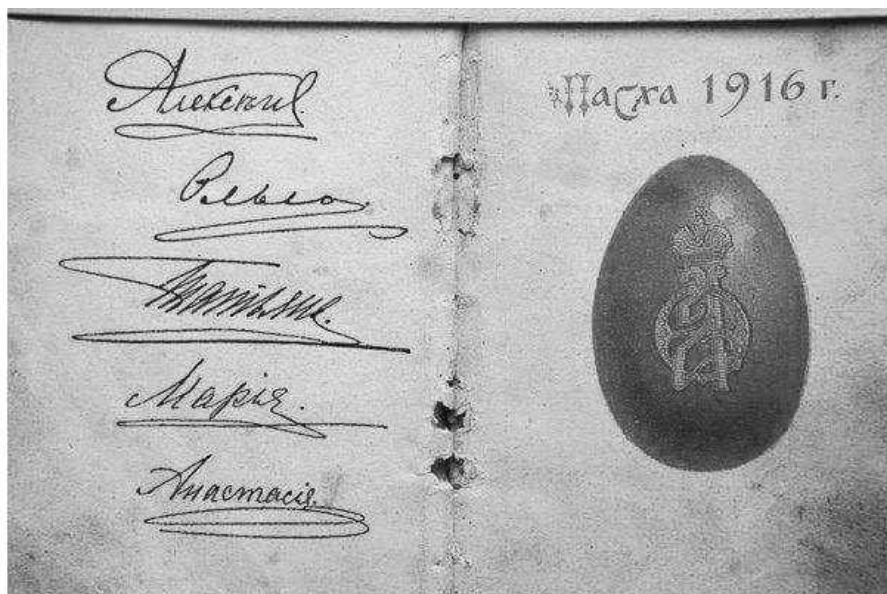 Алексѣй
Ольга
Татьяна.
Марія.
Анастасія.
Пасха 1916 г.